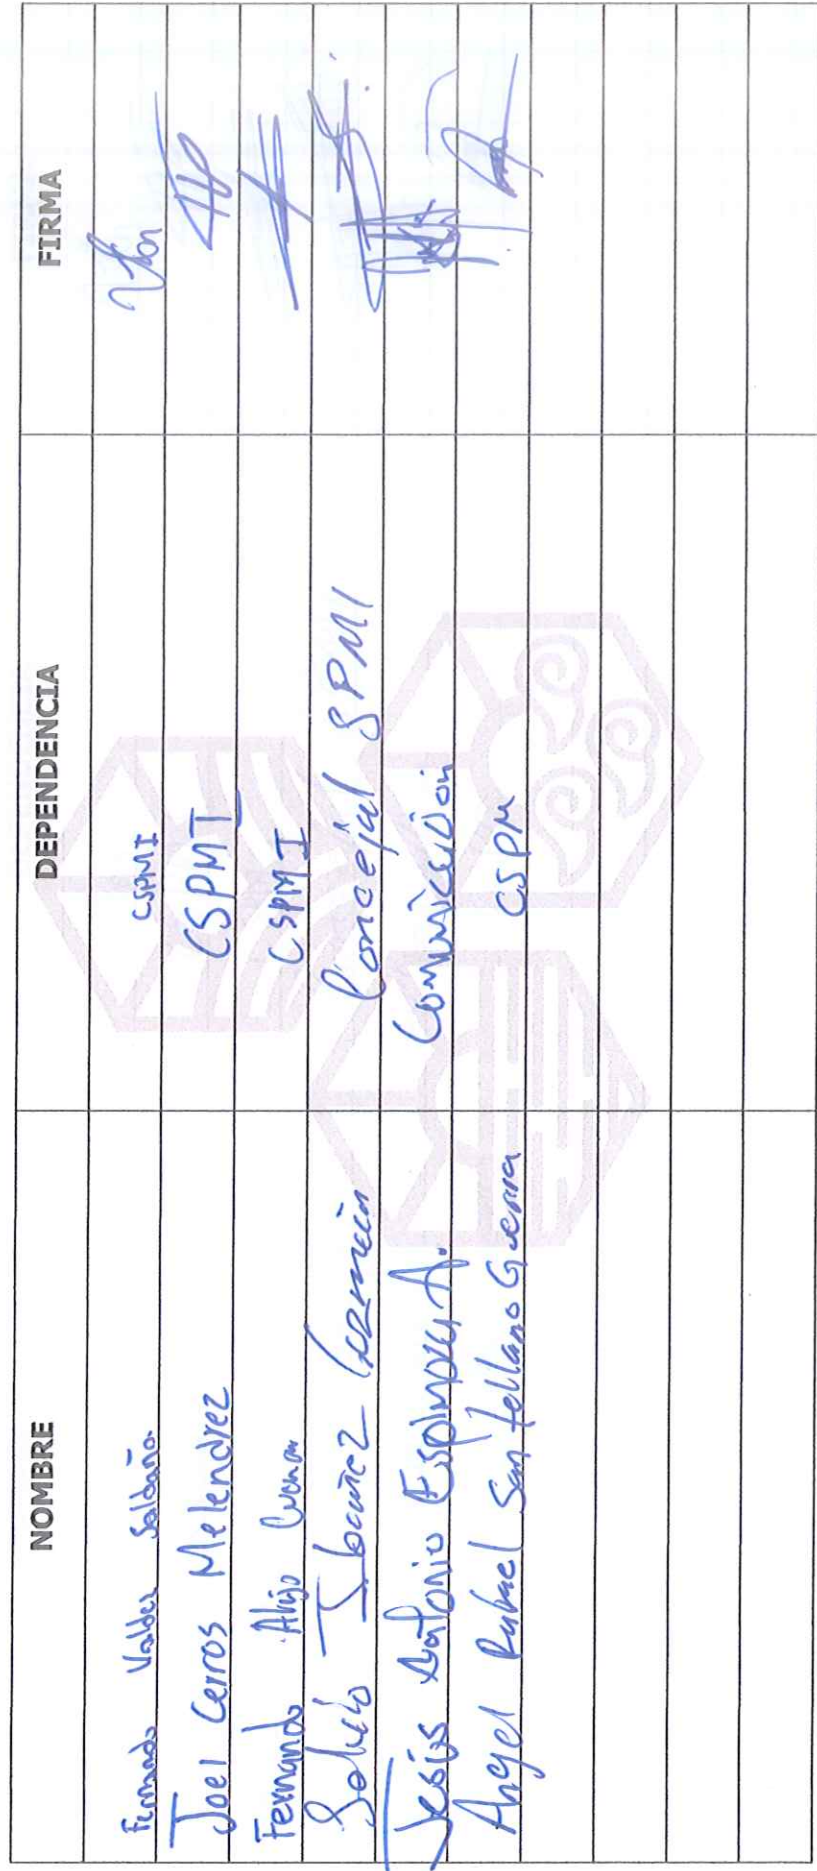 NOMBRE DEPENDENCIA FIRMA
Fernando Valdez Saldaña CSPMI
Joel Cerros Melendrez CSPMI
Fernando Alejo CSPMI
Ibañez Concejal SPMI
Jesús Antonio Espinoza A. Comunicación
Angel Rafael Santellano Guerra CSPM